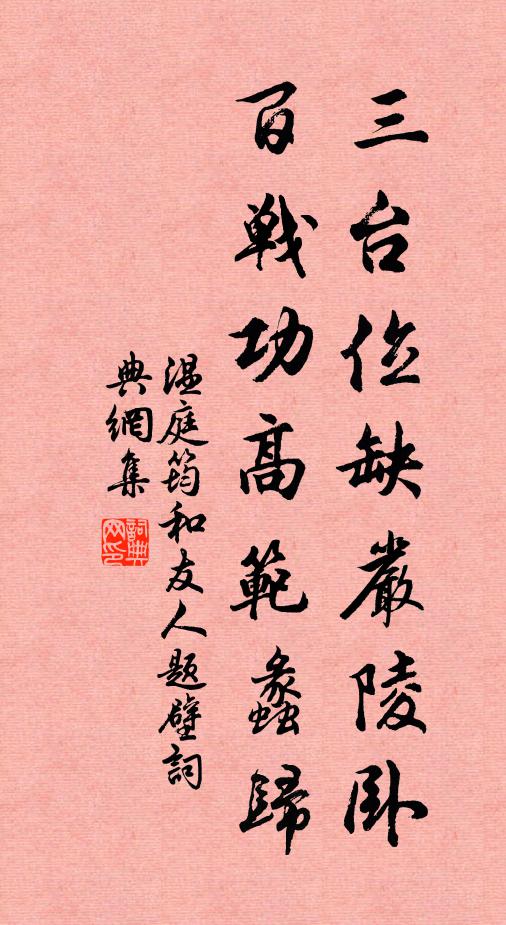 三台位缺嚴陵卧
百戰功高範蠡歸
温庭筠和友人題壁詞
典網集
詞典网印